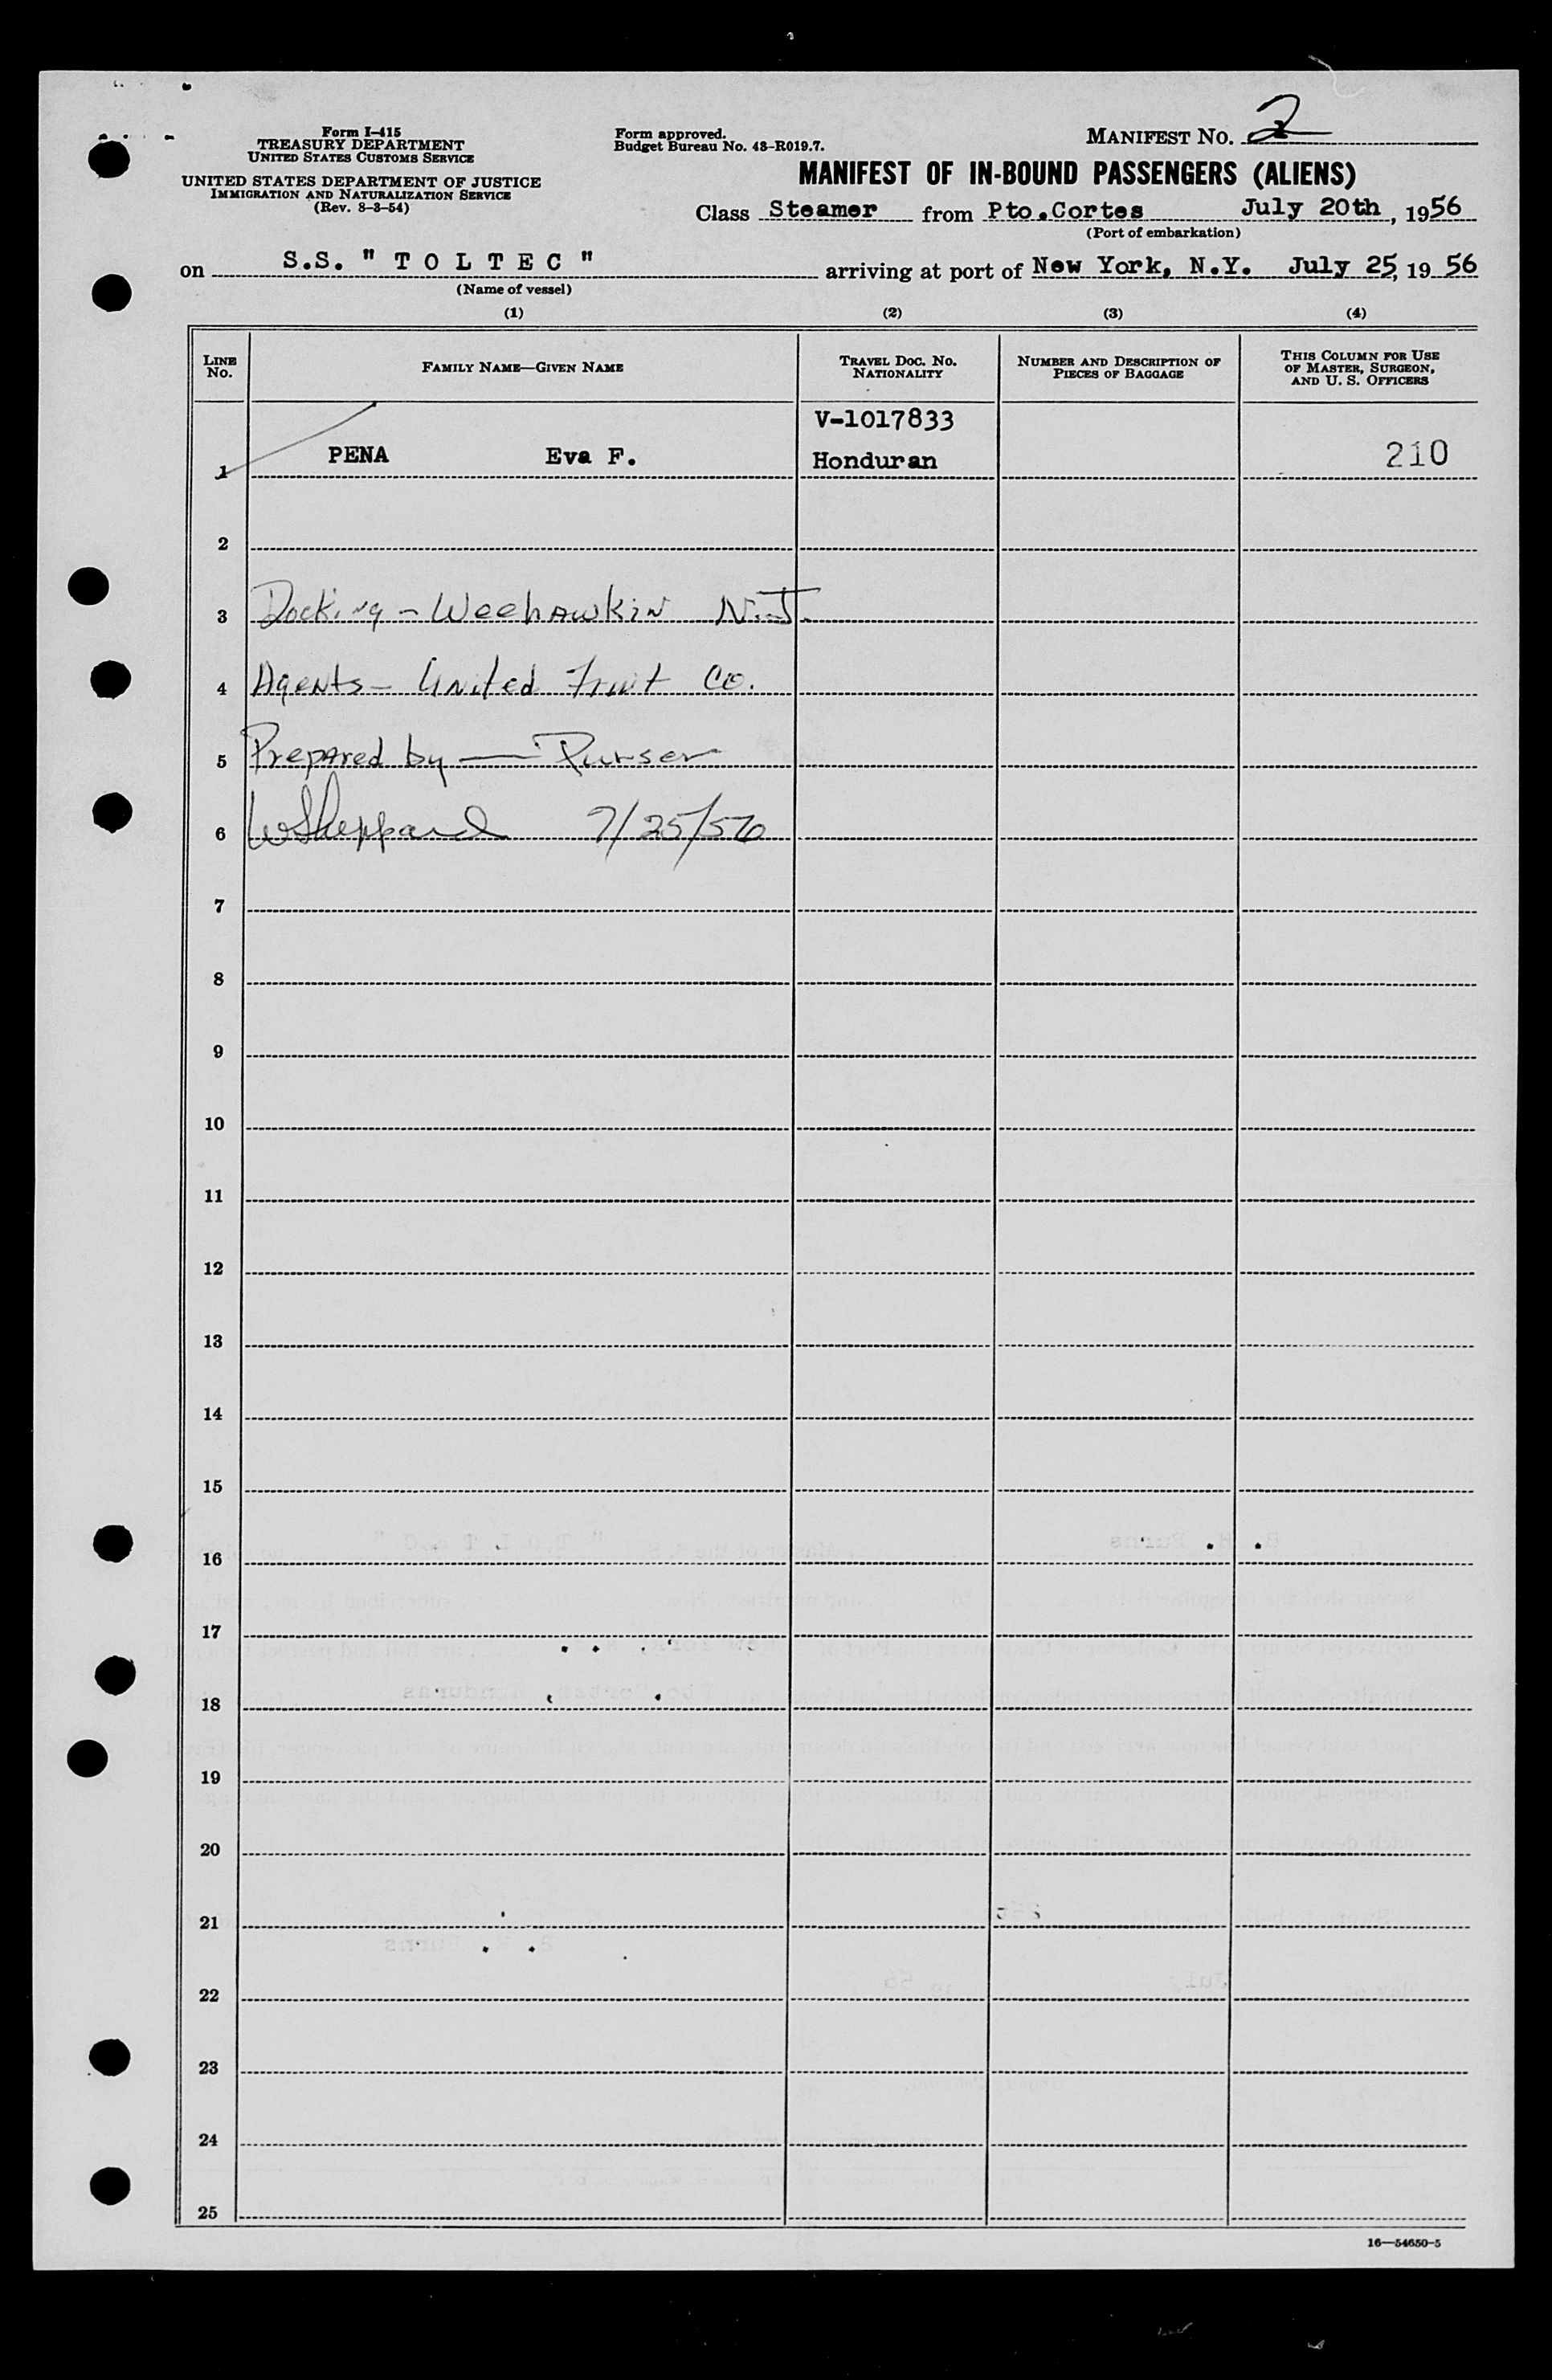 Form I-415
TREASURY DEPARTMENT
UNITED STATES CUSTOMS SERVICE
UNITED STATES DEPARTMENT OF JUSTICE
IMMIGRATION AND NATURALIZATION SERVICE
(Rev. 8-3-54)
Form approved.
Budget Bureau No. 43-R019.7.
MANIFEST NO. 2
MANIFEST OF IN-BOUND PASSENGERS (ALIENS)
Class Steamer from Pto.Cortes July 20th, 1956
(Port of embarkation)
on S.S. " T O L T E C " arriving at port of New York, N.Y. July 25, 19 56
(Name of vessel)
(1) (2) (3) (4)
LINE NO. FAMILY NAME—GIVEN NAME TRAVEL DOC. NO. NATIONALITY NUMBER AND DESCRIPTION OF PIECES OF BAGGAGE THIS COLUMN FOR USE OF MASTER, SURGEON, AND U. S. OFFICERS
V-1017833
1 PENA Eva F. Honduran 210
2
3 Docking - Weehawkin N.J.
4 Agents - United Fruit Co.
5 Prepared by — Purser
6 WSheppard 7/25/56
7
8
9
10
11
12
13
14
15
16
17
18
19
20
21
22
23
24
25
16—54650-5